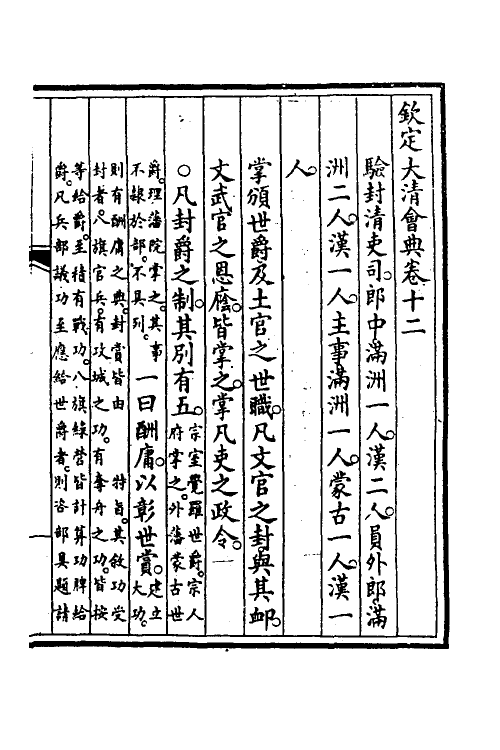 欽定大清會典卷十二
驗封清吏司。郎中滿洲一人。漢二人。員外郎滿
洲二人。漢一人。主事滿洲一人。蒙古一人。漢一
人。
掌頒世爵及土官之世職。凡文官之封與其卹。
文武官之恩廕皆掌之。掌凡吏之政令。
○凡封爵之制。其別有五。宗室覺羅世爵。宗人
府掌之。外藩蒙古世
爵。理藩院掌之。其事
不隸於部。不具列。一曰酬庸。以彰世賞。建立
大功。
則有酬庸之典。封賞皆由 特旨。其敘功受
封者。八旗官兵。有攻城之功。有奪舟之功。皆按
等給爵。至積有戰功。八旗綠營皆計算功牌給
爵。凡兵部議功至應給世爵者。則咨部具題請